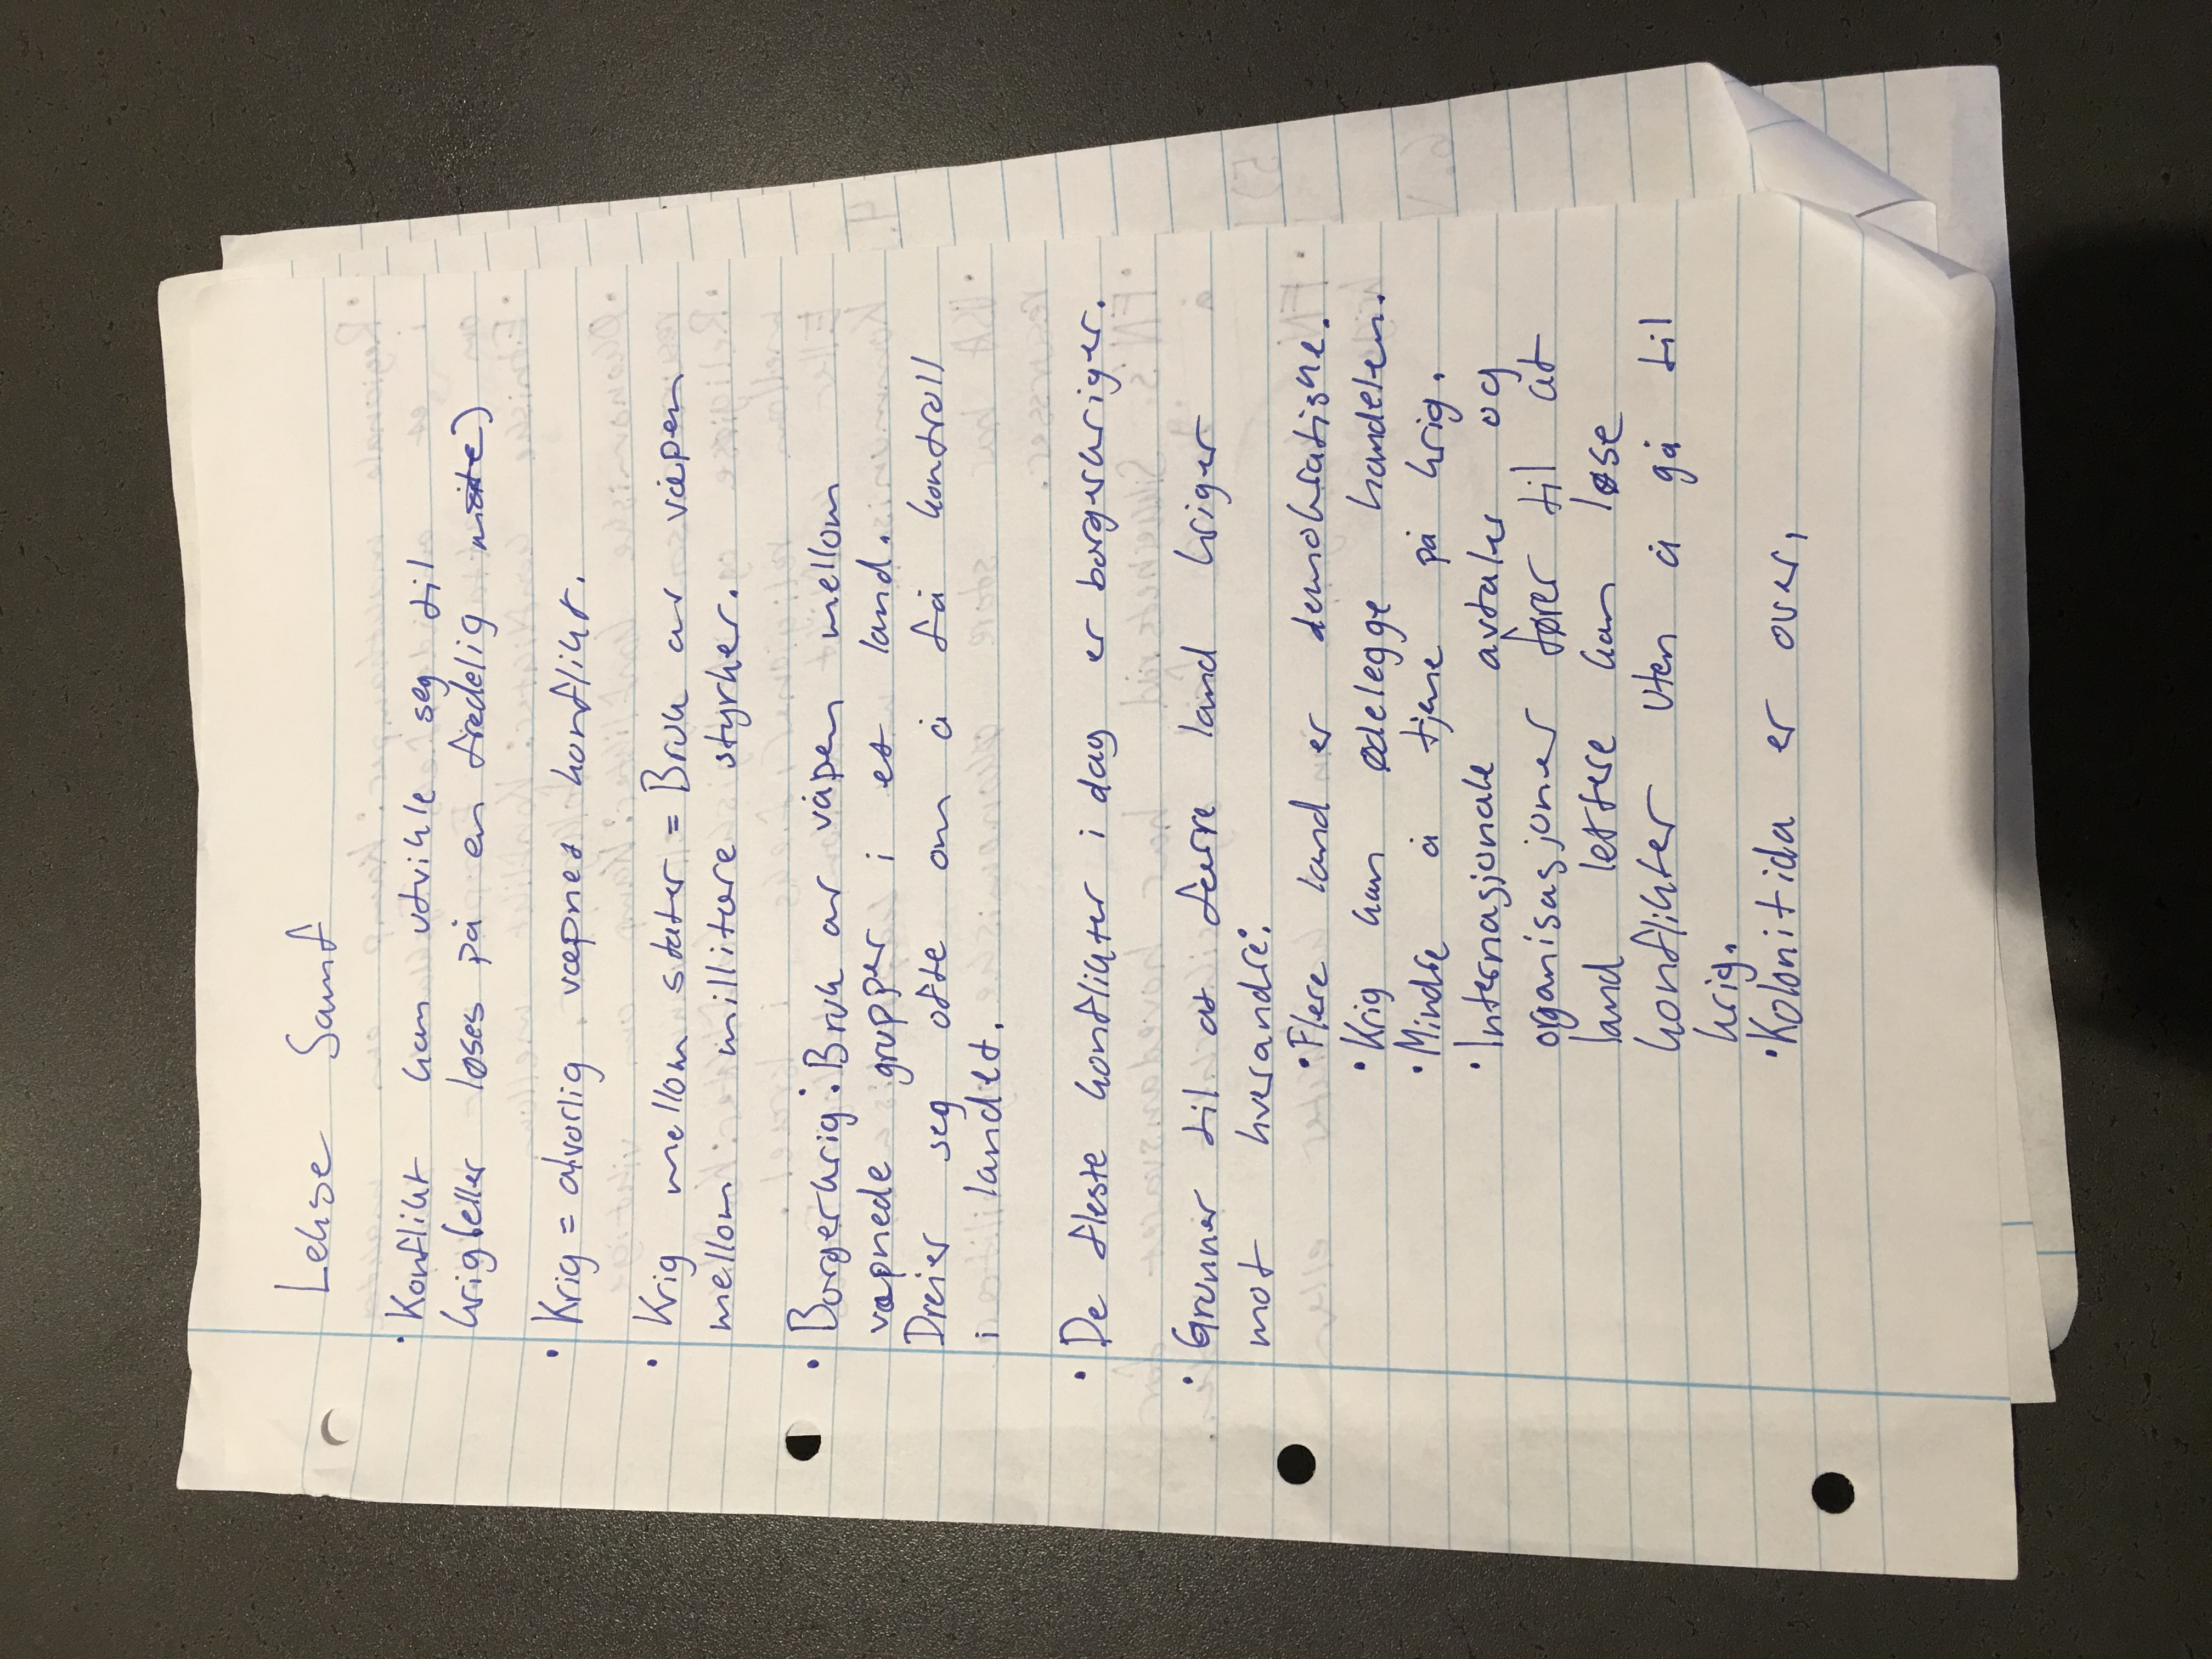 Lekse Samf
• Konflikt kan utvikle seg til
krig (eller løses på en fredelig måte)
• Krig = alvorlig væpnet konflikt.
• Krig mellom stater = Bruk av våpen
mellom millitære styrker.
• Borgerkrig: Bruk av våpen mellom
væpnede grupper i et land.
Dreier seg ofte om å få kontroll
i landet.
• De fleste konflikter i dag er borgerkriger.
• Grunner til at færre land kriger
mot hverandre:
• Flere land er demokratiske.
• Krig kan ødelegge handelen.
• Mindre å tjene på krig.
• Internasjonale avtaler og
organisasjoner fører til at
land lettere kan løse
konflikter uten å gå til
krig.
• Kolonitida er over,